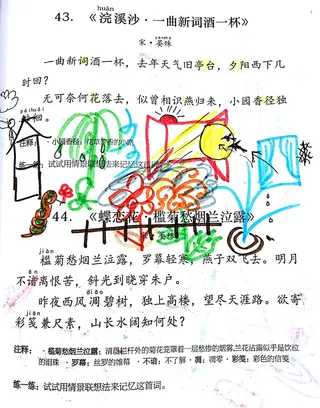 huàn
43. 《浣溪沙·一曲新词酒一杯》
宋·晏殊
一曲新词酒一杯，去年天气旧亭台，夕阳西下几
时回？
无可奈何花落去，似曾相识燕归来，小园香径独
徘徊。
注释： ·小园香径：花草芳香的小路
练一练：试试用情景联想法来记忆这首
44. 《蝶恋花·槛菊愁烟兰泣露》
宋·晏殊
槛菊愁烟兰泣露，罗幕轻寒，燕子双飞去。明月
不谙离恨苦，斜光到晓穿朱户。
昨夜西风凋碧树，独上高楼，望尽天涯路。欲寄
彩笺兼尺素，山长水阔知何处？
注释： ·槛菊愁烟兰泣露：清晨栏杆外的菊花笼罩着一层愁惨的烟雾，兰花沾露似乎是饮泣
的泪珠 ·罗幕：丝罗的帷幕 ·不谙：不了解 ·凋：凋零 ·彩笺：彩色的信笺
练一练：试试用情景联想法来记忆这首词。